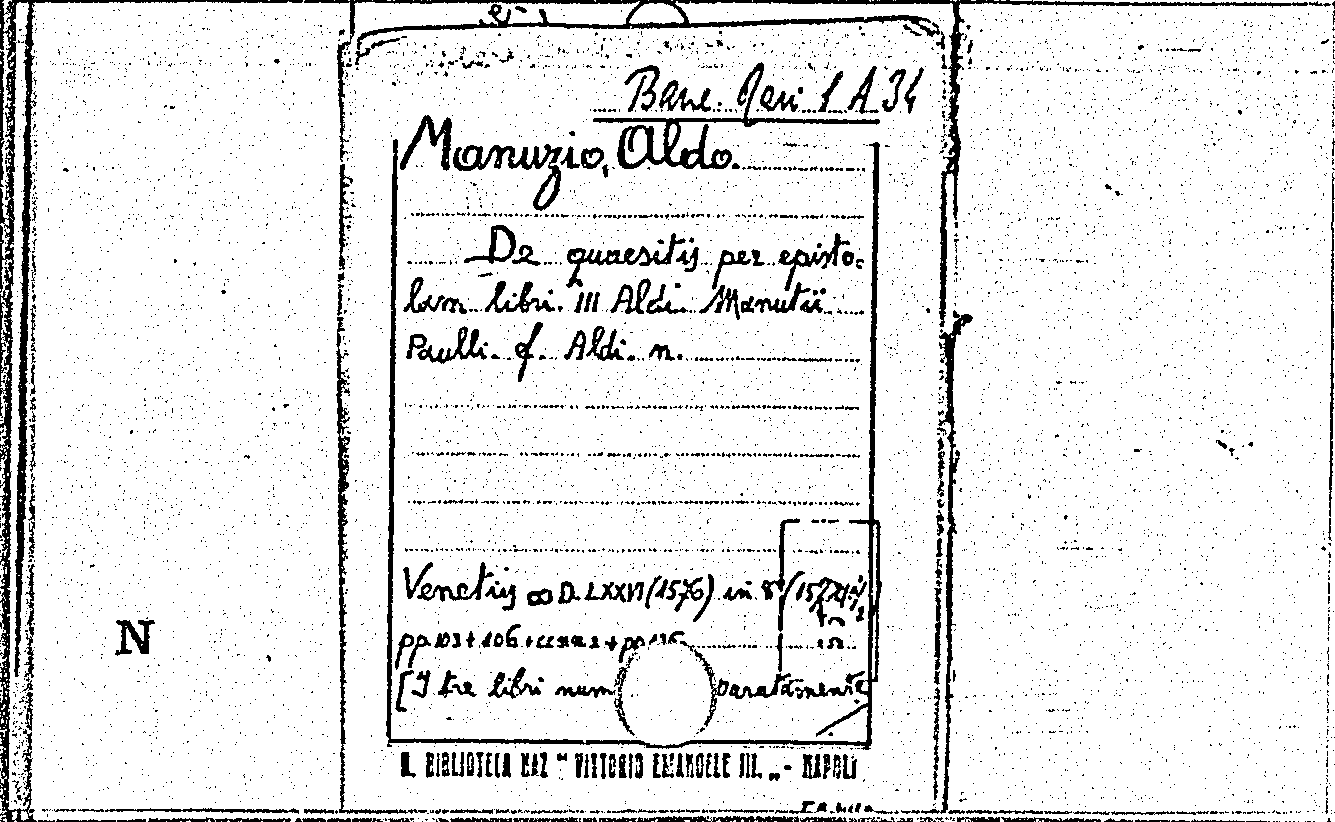 Banc. Neri 1 A 34
Manuzio, Aldo.
De quaesitis per episto-
lam libri. III Aldi. Manutii
Paulli. f. Aldi. n.
Venetiis ∞ D. LXXVI (1576) in 8°
pp. 103 + 106 +
[I tre libri num paratamente
N
R. BIBLIOTECA NAZ "VITTORIO EMANUELE III. „ - NAPOLI